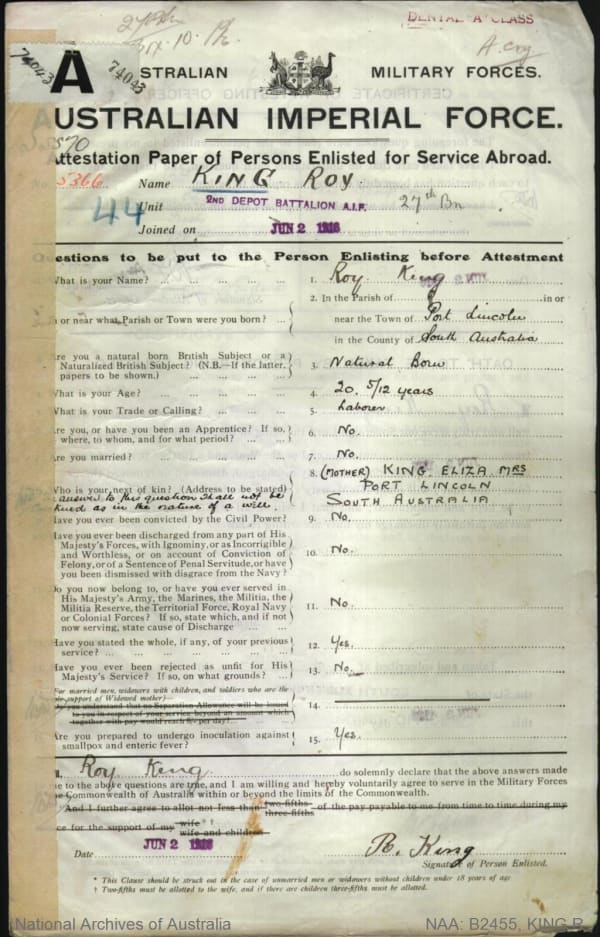 DENTAL "A" CLASS
10.16
A. Coy
74043
74043
A STRALIAN MILITARY FORCES.
USTRALIAN IMPERIAL FORCE.
570
Attestation Paper of Persons Enlisted for Service Abroad.
5366 Name KING ROY.
44 Unit 2ND DEPOT BATTALION A.I.F. 27th Bn
Joined on JUN 2 1916
estions to be put to the Person Enlisting before Attestment
What is your Name? ... 1. Roy King
2. In the Parish of in or
n or near what Parish or Town were you born? ... near the Town of Port Lincoln
in the County of South Australia
Are you a natural born British Subject or a
Naturalized British Subject? (N.B.—If the latter, 3. Natural Born
papers to be shown.)
What is your Age? 4. 20 5/12 years
What is your Trade or Calling? 5. Laborer
Are you, or have you been an Apprentice? If so, 6. No.
where, to whom, and for what period?
Are you married? 7. No.
8. (MOTHER) KING ELIZA MRS
Who is your next of kin? (Address to be stated) PORT LINCOLN
answer to this question shall not be SOUTH AUSTRALIA
trued as in the nature of a will.
Have you ever been convicted by the Civil Power? 9. No.
Have you ever been discharged from any part of His
Majesty's Forces, with Ignominy, or as Incorrigible
and Worthless, or on account of Conviction of 10. No.
Felony, or of a Sentence of Penal Servitude, or have
you been dismissed with disgrace from the Navy?
Do you now belong to, or have you ever served in
His Majesty's Army, the Marines, the Militia, the
Militia Reserve, the Territorial Force, Royal Navy 11. No.
or Colonial Forces? If so, state which, and if not
now serving, state cause of Discharge
Have you stated the whole, if any, of your previous 12. Yes.
service?
Have you ever been rejected as unfit for His 13. No.
Majesty's Service? If so, on what grounds?
For married men, widowers with children, and soldiers who are the
sole support of Widowed mother—
Do you understand that no Separation Allowance will be issued 14.
to you in respect of your service beyond an amount which
together with pay would reach 8/- per day?
Are you prepared to undergo inoculation against 15. Yes.
smallpox and enteric fever?
I, Roy King do solemnly declare that the above answers made
me to the above questions are true, and I am willing and hereby voluntarily agree to serve in the Military Forces
the Commonwealth of Australia within or beyond the limits of the Commonwealth.
And I further agree to allot not less than two-fifths three-fifths of the pay payable to me from time to time during my
ce for the support of my wife*† wife and children
Date JUN 2 1916 R. King
Signature of Person Enlisted.
* This Clause should be struck out in the case of unmarried men or widowers without children under 18 years of age
† Two-fifths must be allotted to the wife, and if there are children three-fifths must be allotted.
National Archives of Australia NAA: B2455, KING R